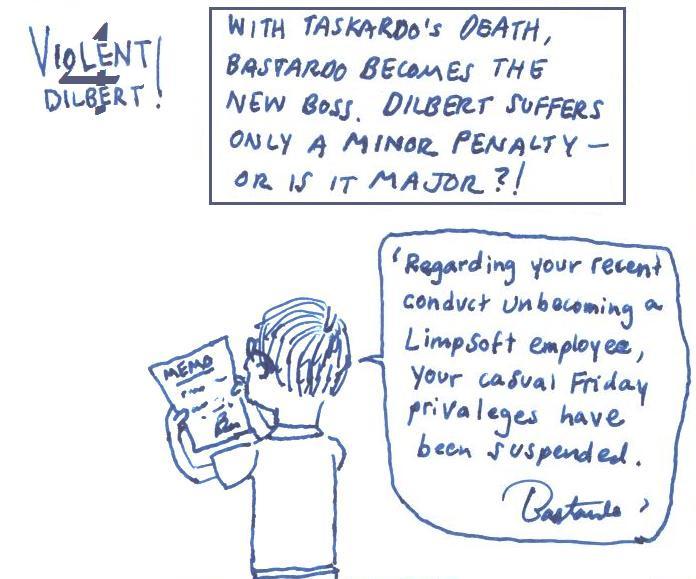 VIOLENT
4
DILBERT!
WITH TASKARDO'S DEATH,
BASTARDO BECOMES THE
NEW BOSS. DILBERT SUFFERS
ONLY A MINOR PENALTY —
OR IS IT MAJOR?!
MEMO
'Regarding your recent
conduct unbecoming a
LimpSoft employee,
your casual Friday
privaleges have
been suspended.
Bastardo'